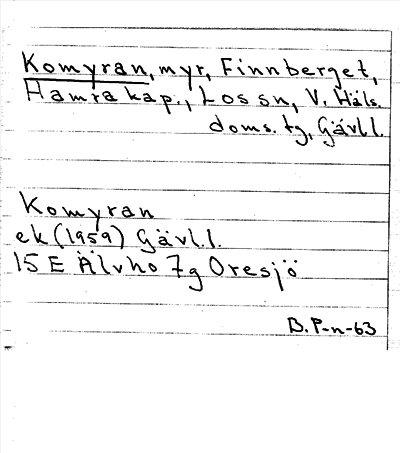 Komyran, myr, Finnberget,
Hamra kap., Los sn, V. Häls.
doms. tg, Gävl.l.
Komyran
ek (1959) Gävl.l.
15 E Älvho 7g Oresjö
B. P-n-63